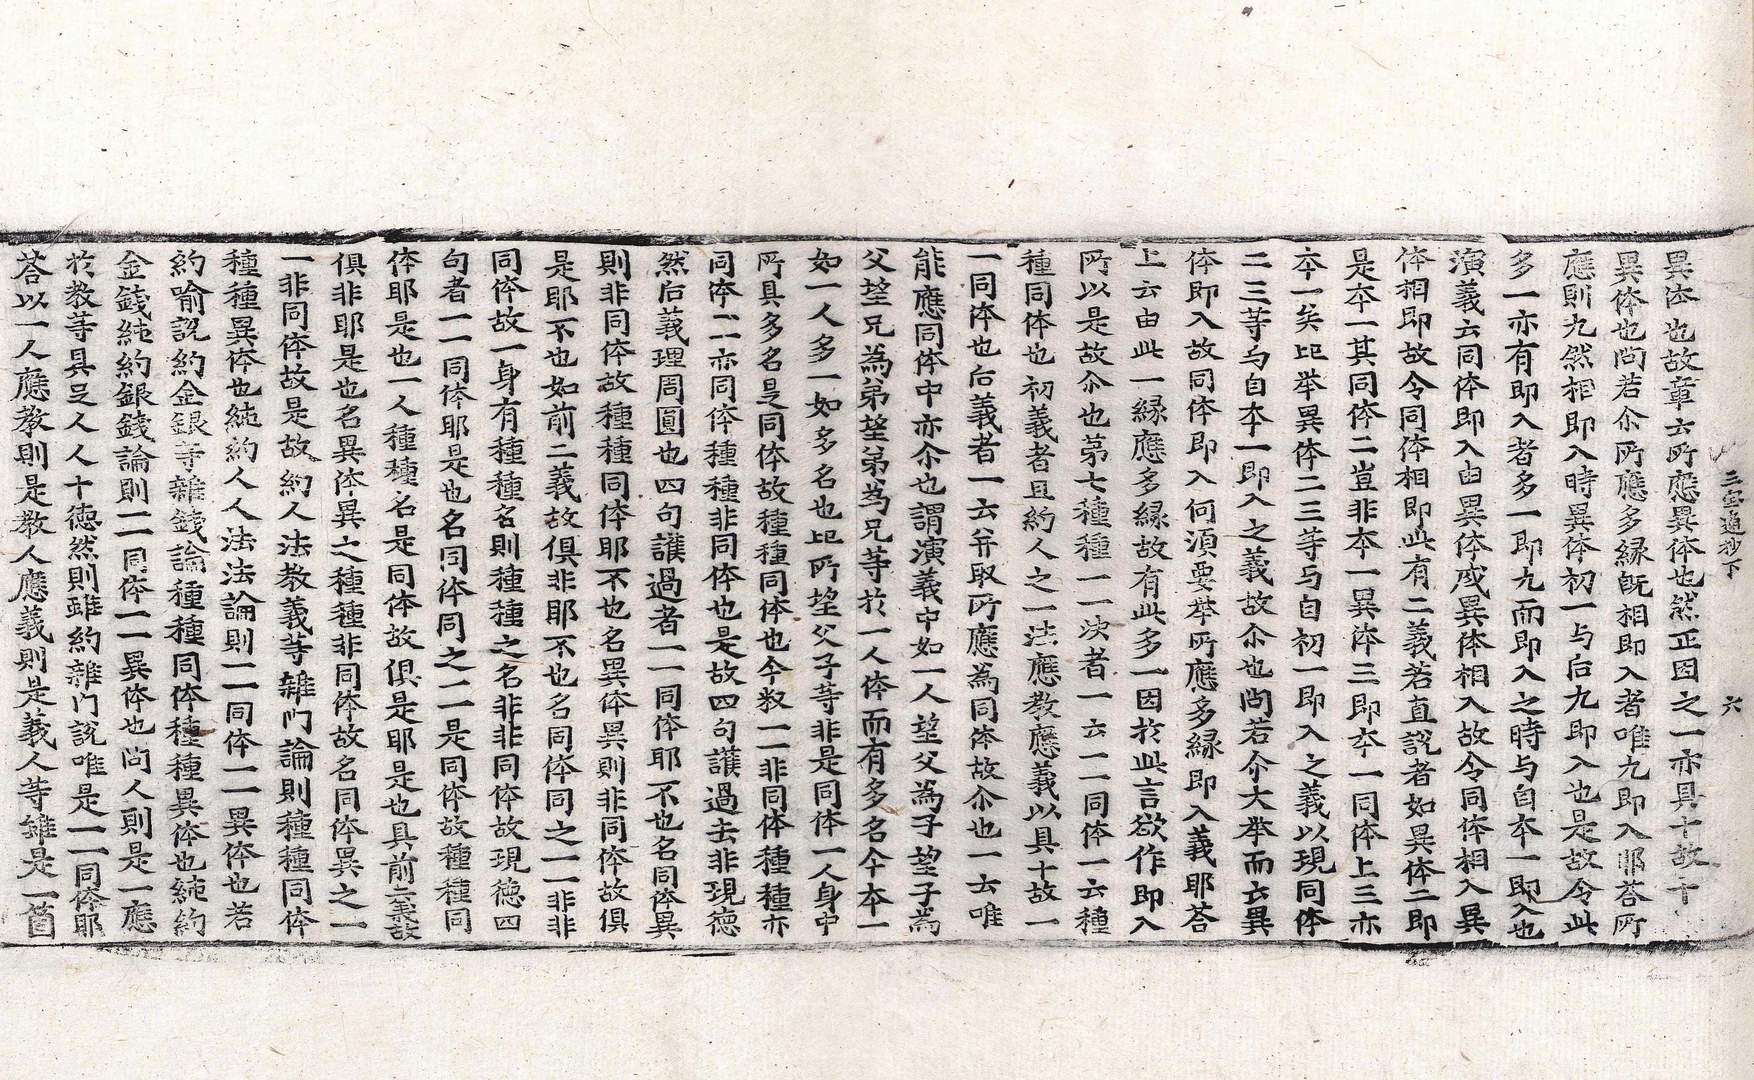 三寶通抄下　六
異体也故章云所應異体也然正因之一亦具十故十
異体也問若尒所應多緣旣相即入者唯九即入耶荅所
應則九然相即入時異体初一与后九即入也是故令此
多一亦有即入者多一即九而即入之時与自本一即入也
演義云同体即入由異体成異体相入故令同体相入異
体相即故令同体相即此有二義若直說者如異体二即
是本一其同体二豈非本一異体三即本一同体上三亦
本一矣此举異体二三等与自初一即入之義以現同体
二三等与自本一即入之義故尒也問若尒大举而云異
体即入故同体即入何湏要举所應多緣即入義耶荅
上云由此一緣應多緣故有此多一因於此言欲作即入
所以是故尒也第七種種一一决者一云一一同体一云種
種同体也初義者且約人之一法應教應義以具十故一
一同体也后義者一云并取所應為同体故尒也一云唯
能應同体中亦尒也謂演義中如一人望父為子望子為
父望兄為弟望弟為兄等於一人体而有多名今本一
如一人多一如多名也此所望父子等非是同体一人身中
所具多名是同体故種種同体也今叙一一非同体種種亦
同体一一亦同体種種非同体也是故四句護過去非現德
然后義理周圓也四句護過者一一同体耶不也名同体異
則非同体故種種同体耶不也名異体異則非同体故俱
是耶不也如前二義故俱非耶不也名同体同之一一非非
同体故一身有種種名則種種之名非非同体故現德四
句者一一同体耶是也名同体同之一一是同体故種種同
体耶是也一人種種名是同体故俱是耶是也具前二義故
俱非耶是也名異体異之種種非同体故名同体異之一
一非同体故是故約人法教義等雜門論則種種同体
種種異体也純約人人法法論則一一同体一一異体也若
約喻說約金銀等雜錢論種種同体種種異体也純約
金錢純約銀錢論則一一同体一一異体也問人則是一應
於教等具足人人十德然則雖約雜門說唯是一一同体耶
荅以一人應教則是教人應義則是義人等雖是一箇